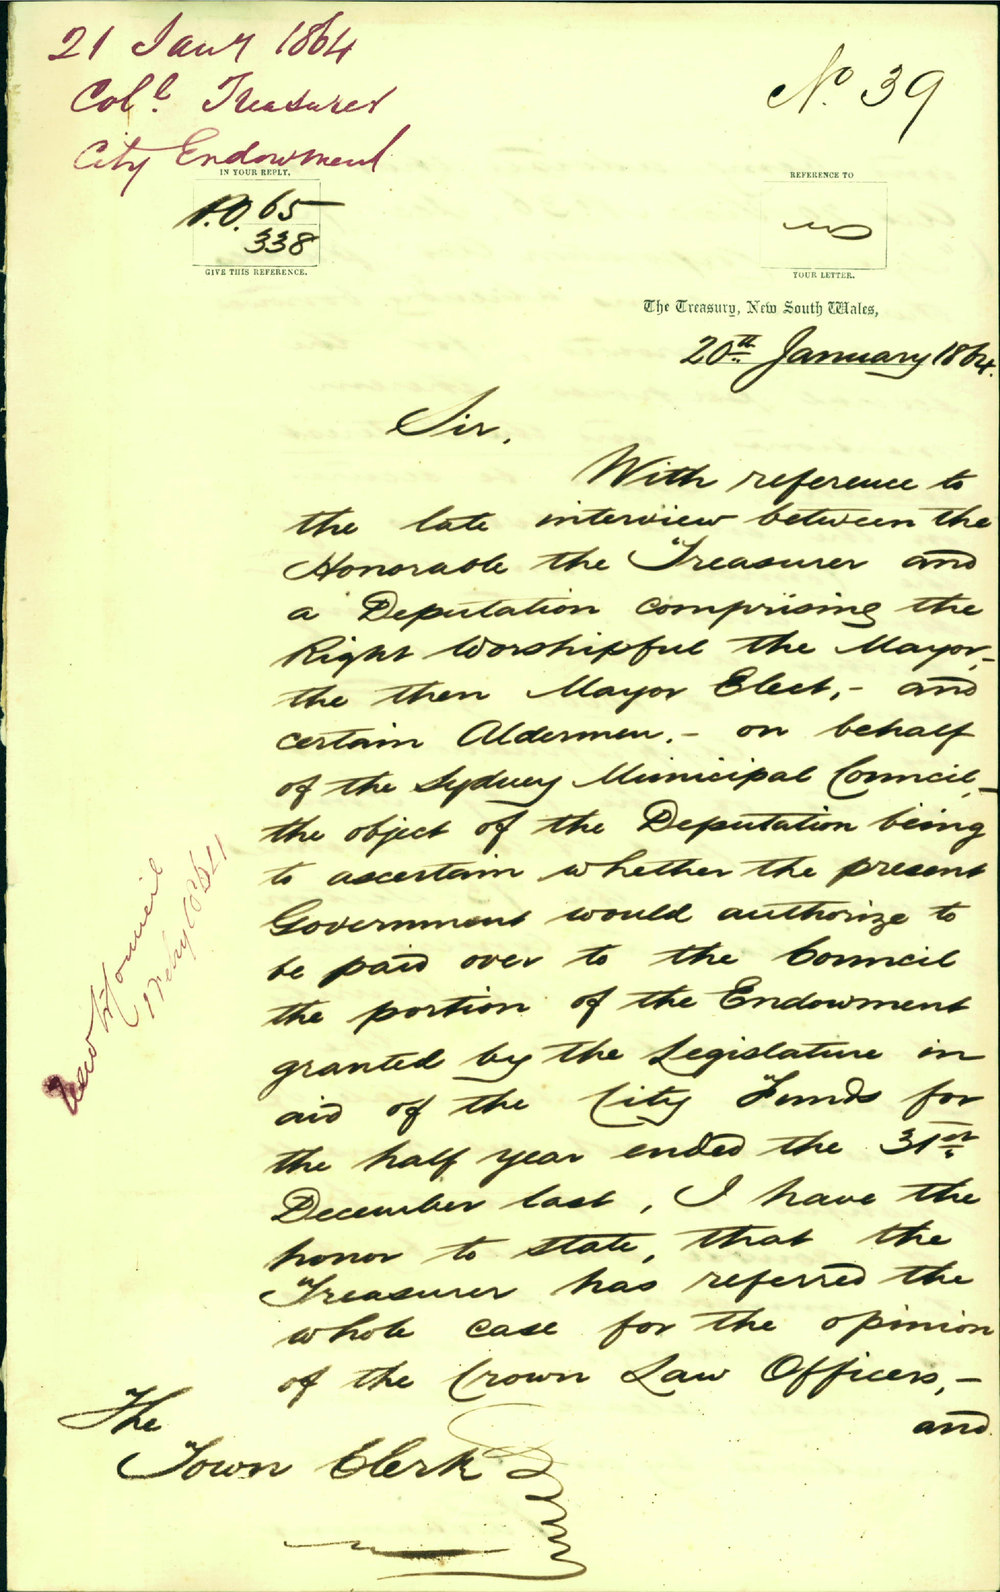 21 Jany 1864
Col.l Treasurer
City Endowment
No. 39
IN YOUR REPLY,
P.O. 65
338
GIVE THIS REFERENCE.
REFERENCE TO
YOUR LETTER.
The Treasury, New South Wales,
20th January 1864.
Sir,
With reference to
the late interview between the
Honorable the Treasurer and
a Deputation comprising the
Right Worshipful the Mayor,-
the then Mayor Elect,- and
certain Aldermen,- on behalf
of the Sydney Municipal Council,-
the object of the Deputation being
to ascertain whether the present
Government would authorize to
be paid over to the Council
the portion of the Endowment
granted by the Legislature in
aid of the City Funds for
the half year ended the 31st
December last, I have the
honor to state, that the
Treasurer has referred the
whole case for the opinion
of the Crown Law Officers,-
and
The
Town Clerk
Council